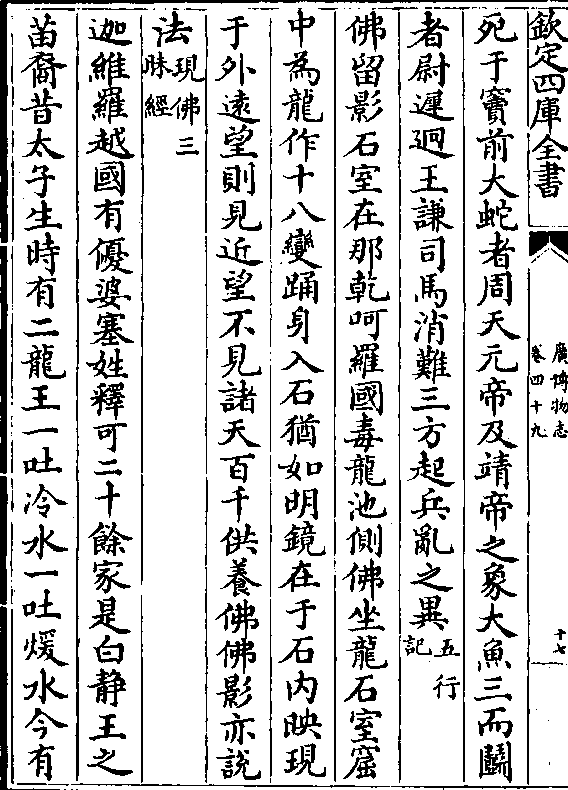 欽定四庫全書
廣博物志
卷四十九
十七
死于竇前大蛇者周天元帝及靖帝之象大魚三而鬭
者尉遲迥王謙司馬消難三方起兵亂之異五行記
佛留影石室在那乾呵羅國毒龍池側佛坐龍石室窟
中為龍作十八變踊身入石猶如明鏡在于石内映現
于外遠望則見近望不見諸天百千供養佛佛影亦說
法現佛三昧經
迦維羅越國有優婆塞姓釋可二十餘家是白静王之
苗裔昔太子生時有二龍王一吐冷水一吐煖水今有